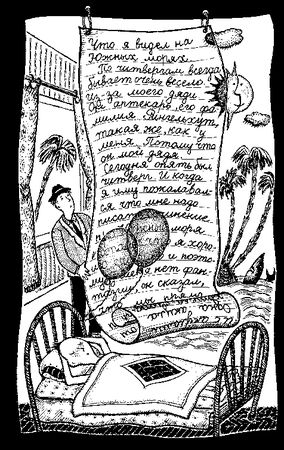 Что я видел на
Южных морях.
По четвергам всегда
бывает очень весело
из-за моего дяди.
Он аптекарь, его фа-
милия Рингельхут,
такая же, как у
меня. Потому что
он мой дядя.
Сегодня опять был
четверг. И когда
я ему пожаловал-
ся что мне надо
писать сочинение
моря
я хоро-
и поэто-
му меня нет фан-
тазии, он сказал,
что мы